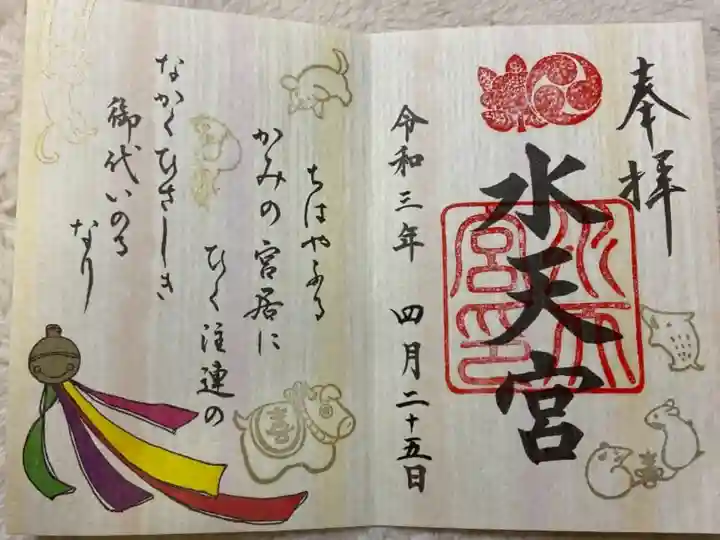 奉拝
水天宮
水天宮印
令和三年 四月二十五日
ちはやふる
かみの宮居に
ひく注連の
なかくひさしき
御代いのる
なり
喜
喜